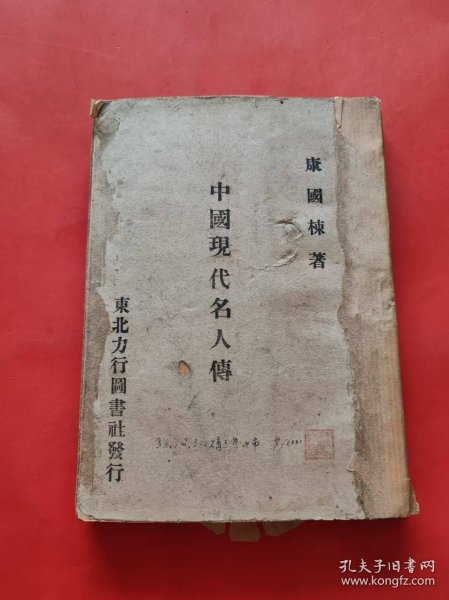 康國棟著
中國現代名人傳
東北力行圖書社發行
孔夫子旧书网
www.kongfz.com